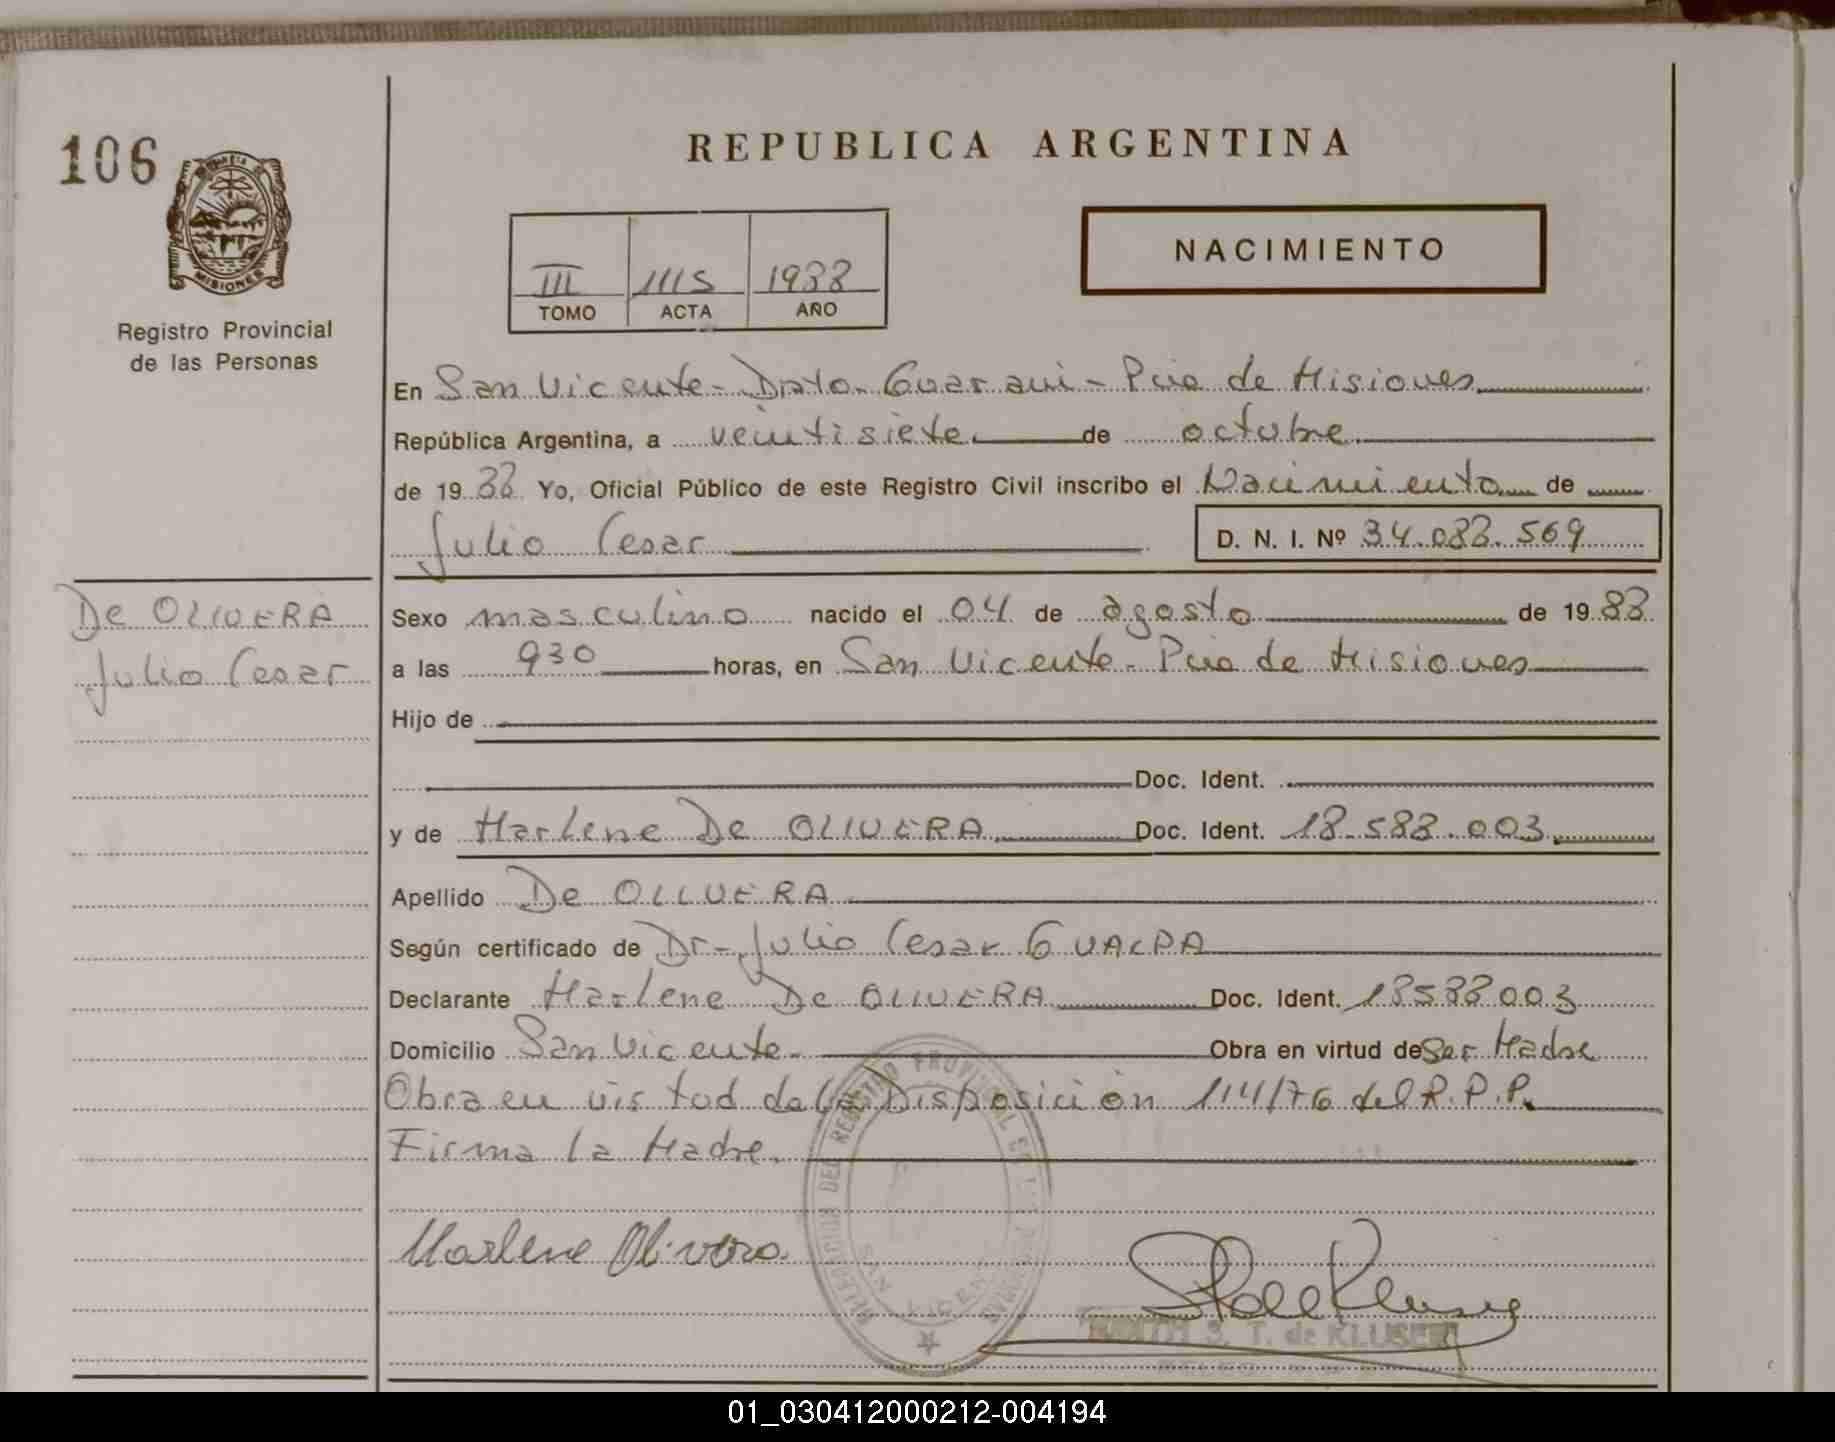 106
REPUBLICA ARGENTINA
MISIONES
Registro Provincial
de las Personas
III 1115 1988
TOMO ACTA AÑO
NACIMIENTO
En San Vicente - Dpto. Guarani - Pcia de Misiones
República Argentina, a veintisiete de octubre
de 19 88 Yo, Oficial Público de este Registro Civil inscribo el Nacimiento de
Julio Cesar D. N. I. Nº 34.088.569
De OLIVERA
Julio Cesar
Sexo masculino nacido el 04 de agosto de 19 88
a las 930 horas, en San Vicente - Pcia de Misiones
Hijo de
Doc. Ident.
y de Marlene De OLIVERA Doc. Ident. 18.588.003
Apellido De OLIVERA
Según certificado de Dr. Julio Cesar GUALPA
Declarante Marlene De OLIVERA Doc. Ident. 18588003
Domicilio San Vicente Obra en virtud de Ser Madre
Obra en virtud de la Disposición 114/76 del R.P.P.
Firma la Madre.
Marlene Olivera.
DELEGACION DEL REGISTRO PROVINCIAL DE LAS PERSONAS
SAN VICENTE
S. T. de KLUSE
01_030412000212-004194